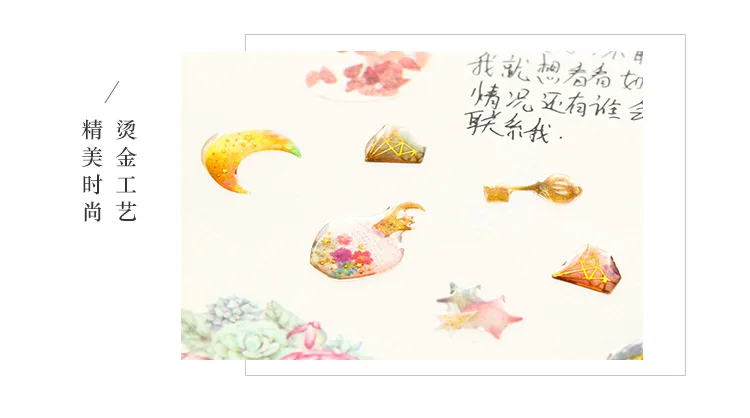 烫金工艺
精美时尚
我就想看看如
情况还有谁会
联系我.